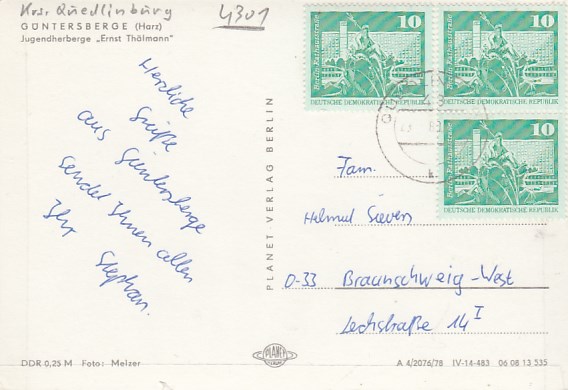 Krs. Quedlinburg 4301
GÜNTERSBERGE (Harz)
Jugendherberge „Ernst Thälmann"
Herzliche
Grüße
aus Güntersberge
sendet Ihnen allen
Ihr Stephan.
PLANET-VERLAG BERLIN
10
Berlin, Rathausstraße
DEUTSCHE DEMOKRATISCHE REPUBLIK
10
Berlin, Rathausstraße
DEUTSCHE DEMOKRATISCHE REPUBLIK
10
Berlin, Rathausstraße
DEUTSCHE DEMOKRATISCHE REPUBLIK
Fam.
Helmut Sievers
D-33 Braunschweig-West
Lechstraße 14 I
DDR 0,25 M Foto: Melzer
PLANET
A 4/2076/78 IV-14-483 06 08 13 535